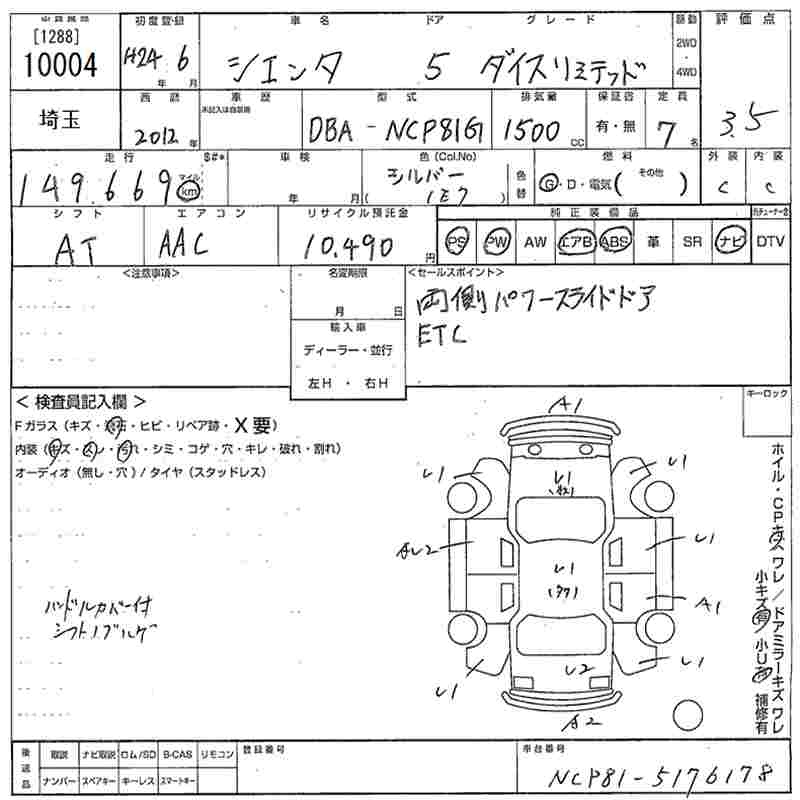 [1288]
10004
初度登録
H24 年 6 月
車名
シエンタ
ドア
5
グレード
ダイスリミテッド
駆動
2WD
・
4WD
評価点
3.5
埼玉
西暦
2012 年
車歴
未記入は自家用
型式
DBA-NCP81G
排気量
1500 CC
保証書
有・無
定員
7 名
走行
149.669 マイル km
$#*
車検
年 月
色(Col.No)
シルバー
(1E7)
色替
燃料
G・D・電気( その他 )
外装
C
内装
C
シフト
AT
エアコン
AAC
リサイクル預託金
10.490 円
純正装備品
PS PW AW エアB ABS 革 SR ナビ
DTV
<注意事項>
名変期限
月 日
輸入車
ディーラー・並行
左H・右H
<セールスポイント>
両側パワースライドドア
ETC
<検査員記入欄>
Fガラス(キズ・飛石・ヒビ・リペア跡・X要)
内装(キズ・スレ・汚れ・シミ・コゲ・穴・キレ・破れ・割れ)
オーディオ(無し・穴)/タイヤ(スタッドレス)
キーロック
A1
U1
U1
U1
AU2
U1
U1
A1
U2
U1
U1
A2
ハンドルカバー付
シフトノブハゲ
ホイル・CPキズ ワレ/ドアミラーキズ ワレ
小キズ有/小U有 補修有
後送品
取説 ナビ取説 ロム/SD B-CAS リモコン
ナンバー スペアキー キーレス スマートキー
登録番号
車台番号
NCP81-5176178